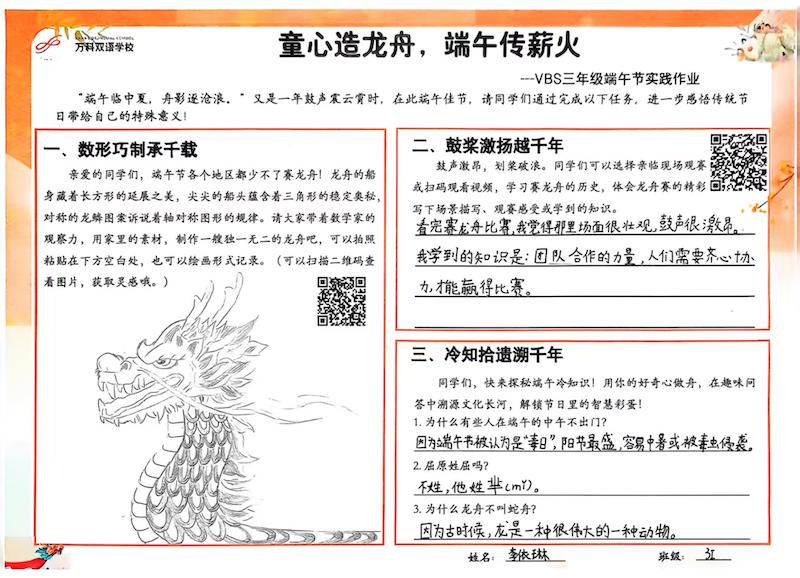 万科双语学校
童心造龙舟，端午传薪火
---VBS三年级端午节实践作业
“端午临中夏，舟影逐沧浪。”又是一年鼓声震云霄时，在此端午佳节，请同学们通过完成以下任务，进一步感悟传统节
日带给自己的特殊意义！
一、数形巧制承千载
亲爱的同学们，端午节各个地区都少不了赛龙舟！龙舟的船
身藏着长方形的延展之美，尖尖的船头蕴含着三角形的稳定奥秘，
对称的龙鳞图案诉说着轴对称图形的规律。请大家带着数学家的
观察力，用家里的素材，制作一艘独一无二的龙舟吧，可以拍照
粘贴在下方空白处，也可以绘画形式记录。（可以扫描二维码查
看图片，获取灵感哦。）
二、鼓桨激扬越千年
鼓声激昂，划桨破浪。同学们可以选择亲临现场观赛
或扫码观看视频，学习赛龙舟的历史，体会龙舟赛的精彩
写下场景描写、观赛感受或学到的知识。
看完赛龙舟比赛，我觉得那里场面很壮观，鼓声很激昂。
我学到的知识是：团队合作的力量，人们需要齐心协
力，才能赢得比赛。
三、冷知拾遗溯千年
同学们，快来探秘端午冷知识！用你的好奇心做舟，在趣味问
答中溯源文化长河，解锁节日里的智慧彩蛋！
1.为什么有些人在端午的中午不出门？
因为端午节被认为是“毒日”，阳节最盛，容易中暑或被毒虫侵袭。
2.屈原姓屈吗？
不姓，他姓芈(mǐ)。
3.为什么龙舟不叫蛇舟？
因为古时候，龙是一种很伟大的一种动物。
姓名：李依琳 班级：3